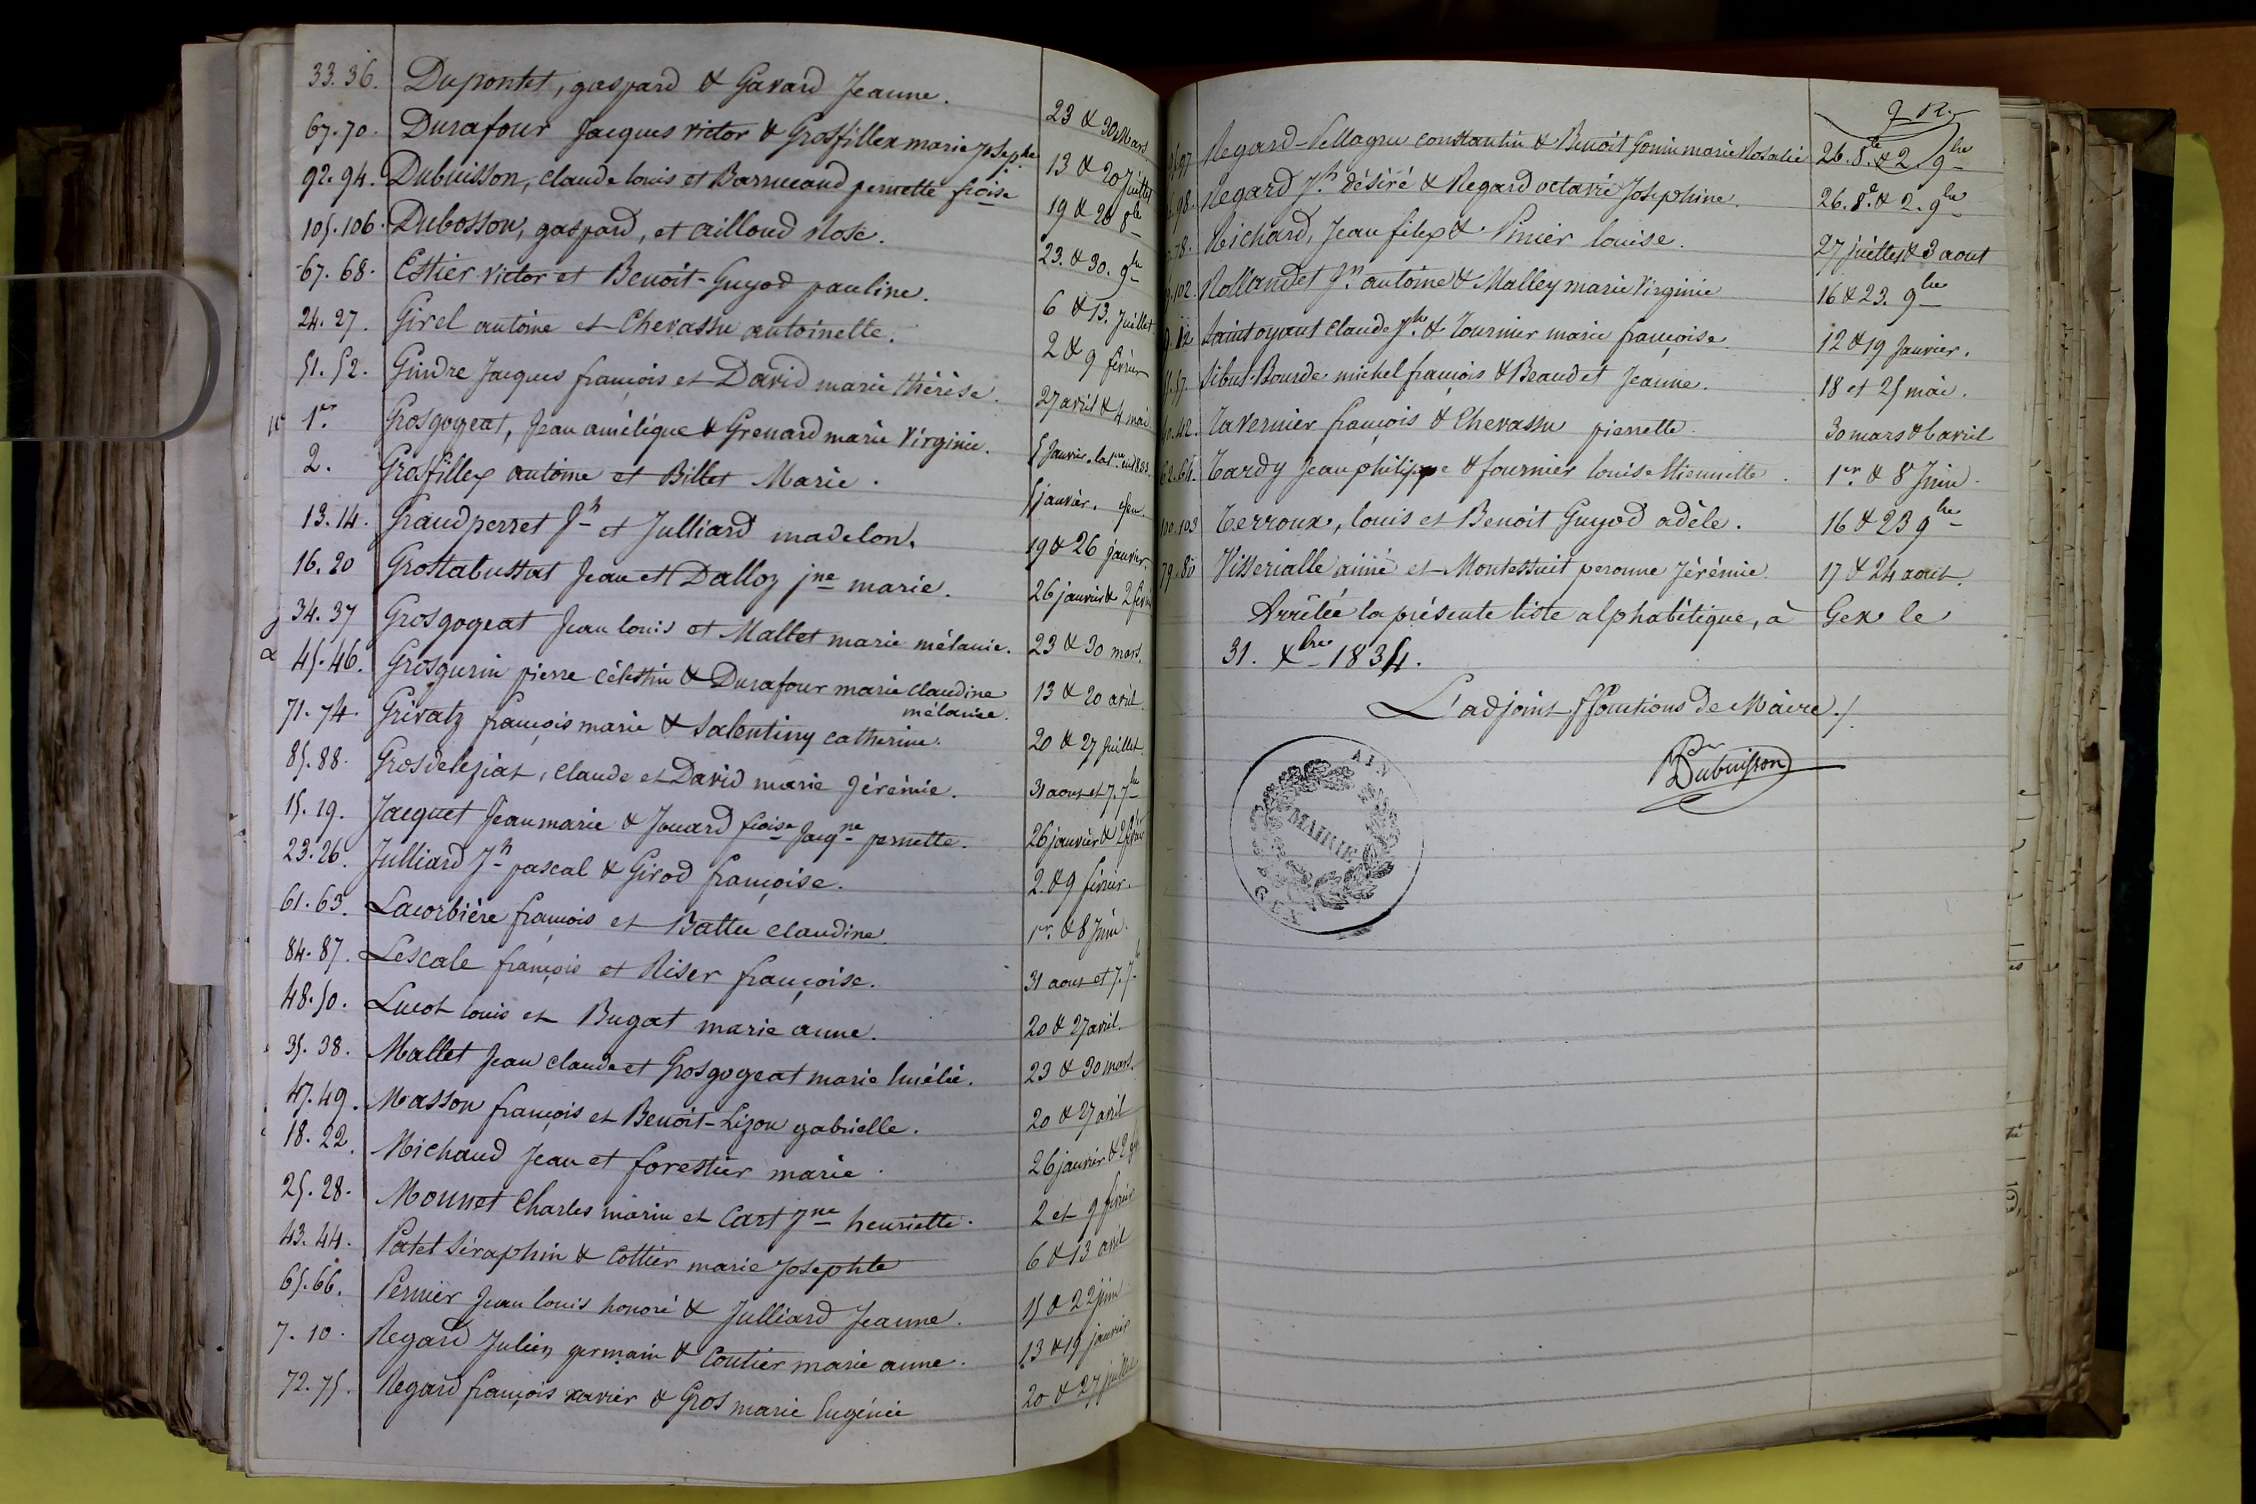 33. 36. Dupontet, gaspard & Gavard Jeanne. 23 & 30 Mars
67. 70. Durafour Jacques victor & Grosfillex marie Josephe 13 & 20 Juillet
92. 94. Dubuisson, claude louis et Barnecaud pernette froise 19 & 26 8bre
105. 106. Dubosson, gaspard, et ailloud Rose. 23. & 30. 9bre
67. 68. Estier victor et Benoit-Guyod pauline. 6 & 13. Juillet
24. 27. Girel antoine et Chevassu antoinette. 2 & 9 février
51. 52. Gindre Jacques françois et David marie thérèse. 27 avril & 4 mai
1er. Grosgogeat, Jean amélique & Grenard marie Virginie. 5 Janvier. la 1re en 1833.
2. Grosfillex antoine et Billet Marie. 5 janvier.
13. 14. Grandperret Jh et Julliard madelon. 19 & 26 janvier
16. 20 Grostabussiat Jean et Dalloz jne marie. 26 janvier & 2 février
34. 37 Grosgogeat Jean louis et Mallet marie mélanie. 23 & 30 mars.
45. 46. Grosgurin pierre Célestin & Durafour marie claudine mélanie. 13 & 20 avril.
71. 74. Grivatz françois marie & Salentiny catherine. 20 & 27 Juillet.
85. 88. Grosdelegiat, claude et David marie Jérémie. 31 aout et 7. 7bre
15. 19. Jacquet Jean marie & Jouard froise Jacqne pernette. 26 janvier & 2 février
23. 26. Julliard Jh pascal & Girod françoise. 2. & 9 février.
61. 63. Lacorbière françois et Battu claudine. 1er. & 8 Juin.
84. 87. Lescale françois et Riser françoise. 31 aout et 7. 7bre
48. 50. Lucot louis et Bugat marie anne. 20 & 27 avril.
35. 38. Mallet Jean claude et Grosgogeat marie Amélie. 23 & 30 mars.
47. 49. Masson françois et Benoit-Lizon gabrielle. 20 & 27 avril
18. 22. Michaud Jean et forestier marie. 26 janvier & 2
25. 28. Mounet Charles marin et Cart Jne henriette. 2 et 9 février
43. 44. Patet Séraphin & Cottier marie Josephte 6 & 13 avril
65. 66. Pernier Jean louis honoré & Julliard Jeanne. 15 & 22 juin
7. 10. Regard Julien germain & Coutier marie anne. 13 & 19 janvier
72. 75. Regard françois xavier & Gros marie Eugénie 20. & 27 juillet
97 Regard-Pellagru constantin & Benoit Gonin marie Rosalie 26. 8bre & 2. 9bre
98. Regard Jh désiré & Regard octavie Josephine. 26. 8e & 2. 9bre
78. Richard, Jean felix & Pinier louise. 27 juillet & 3 aout
102. Rollandet Jn antoine & Malley marie Virginie 16 & 23. 9bre
12 Saintoyant claude Jh & Tournier marie françoise 12 & 19 Janvier.
57. Sibut-Bourde michel françois & Beaudet Jeanne. 18 et 25 mai.
42. Tavernier françois & Chevassu pierrette. 30 mars & 6 avril
62. 64. Tardy Jean philippe & fournier louise Etiennette. 1er. & 8 Juin.
100. 103 Terroux, louis et Benoit Guyod adèle. 16 & 23 9bre
79. 80 Visserialle aimé et Montessuit peronne Jérémie. 17 & 24 aout.
Arrêtée la présente liste alphabétique, à Gex le
31. Xbre 1834.
L'adjoint ffonctions de Maire./.
Dubuisson
AIN
MAIRIE
GEX